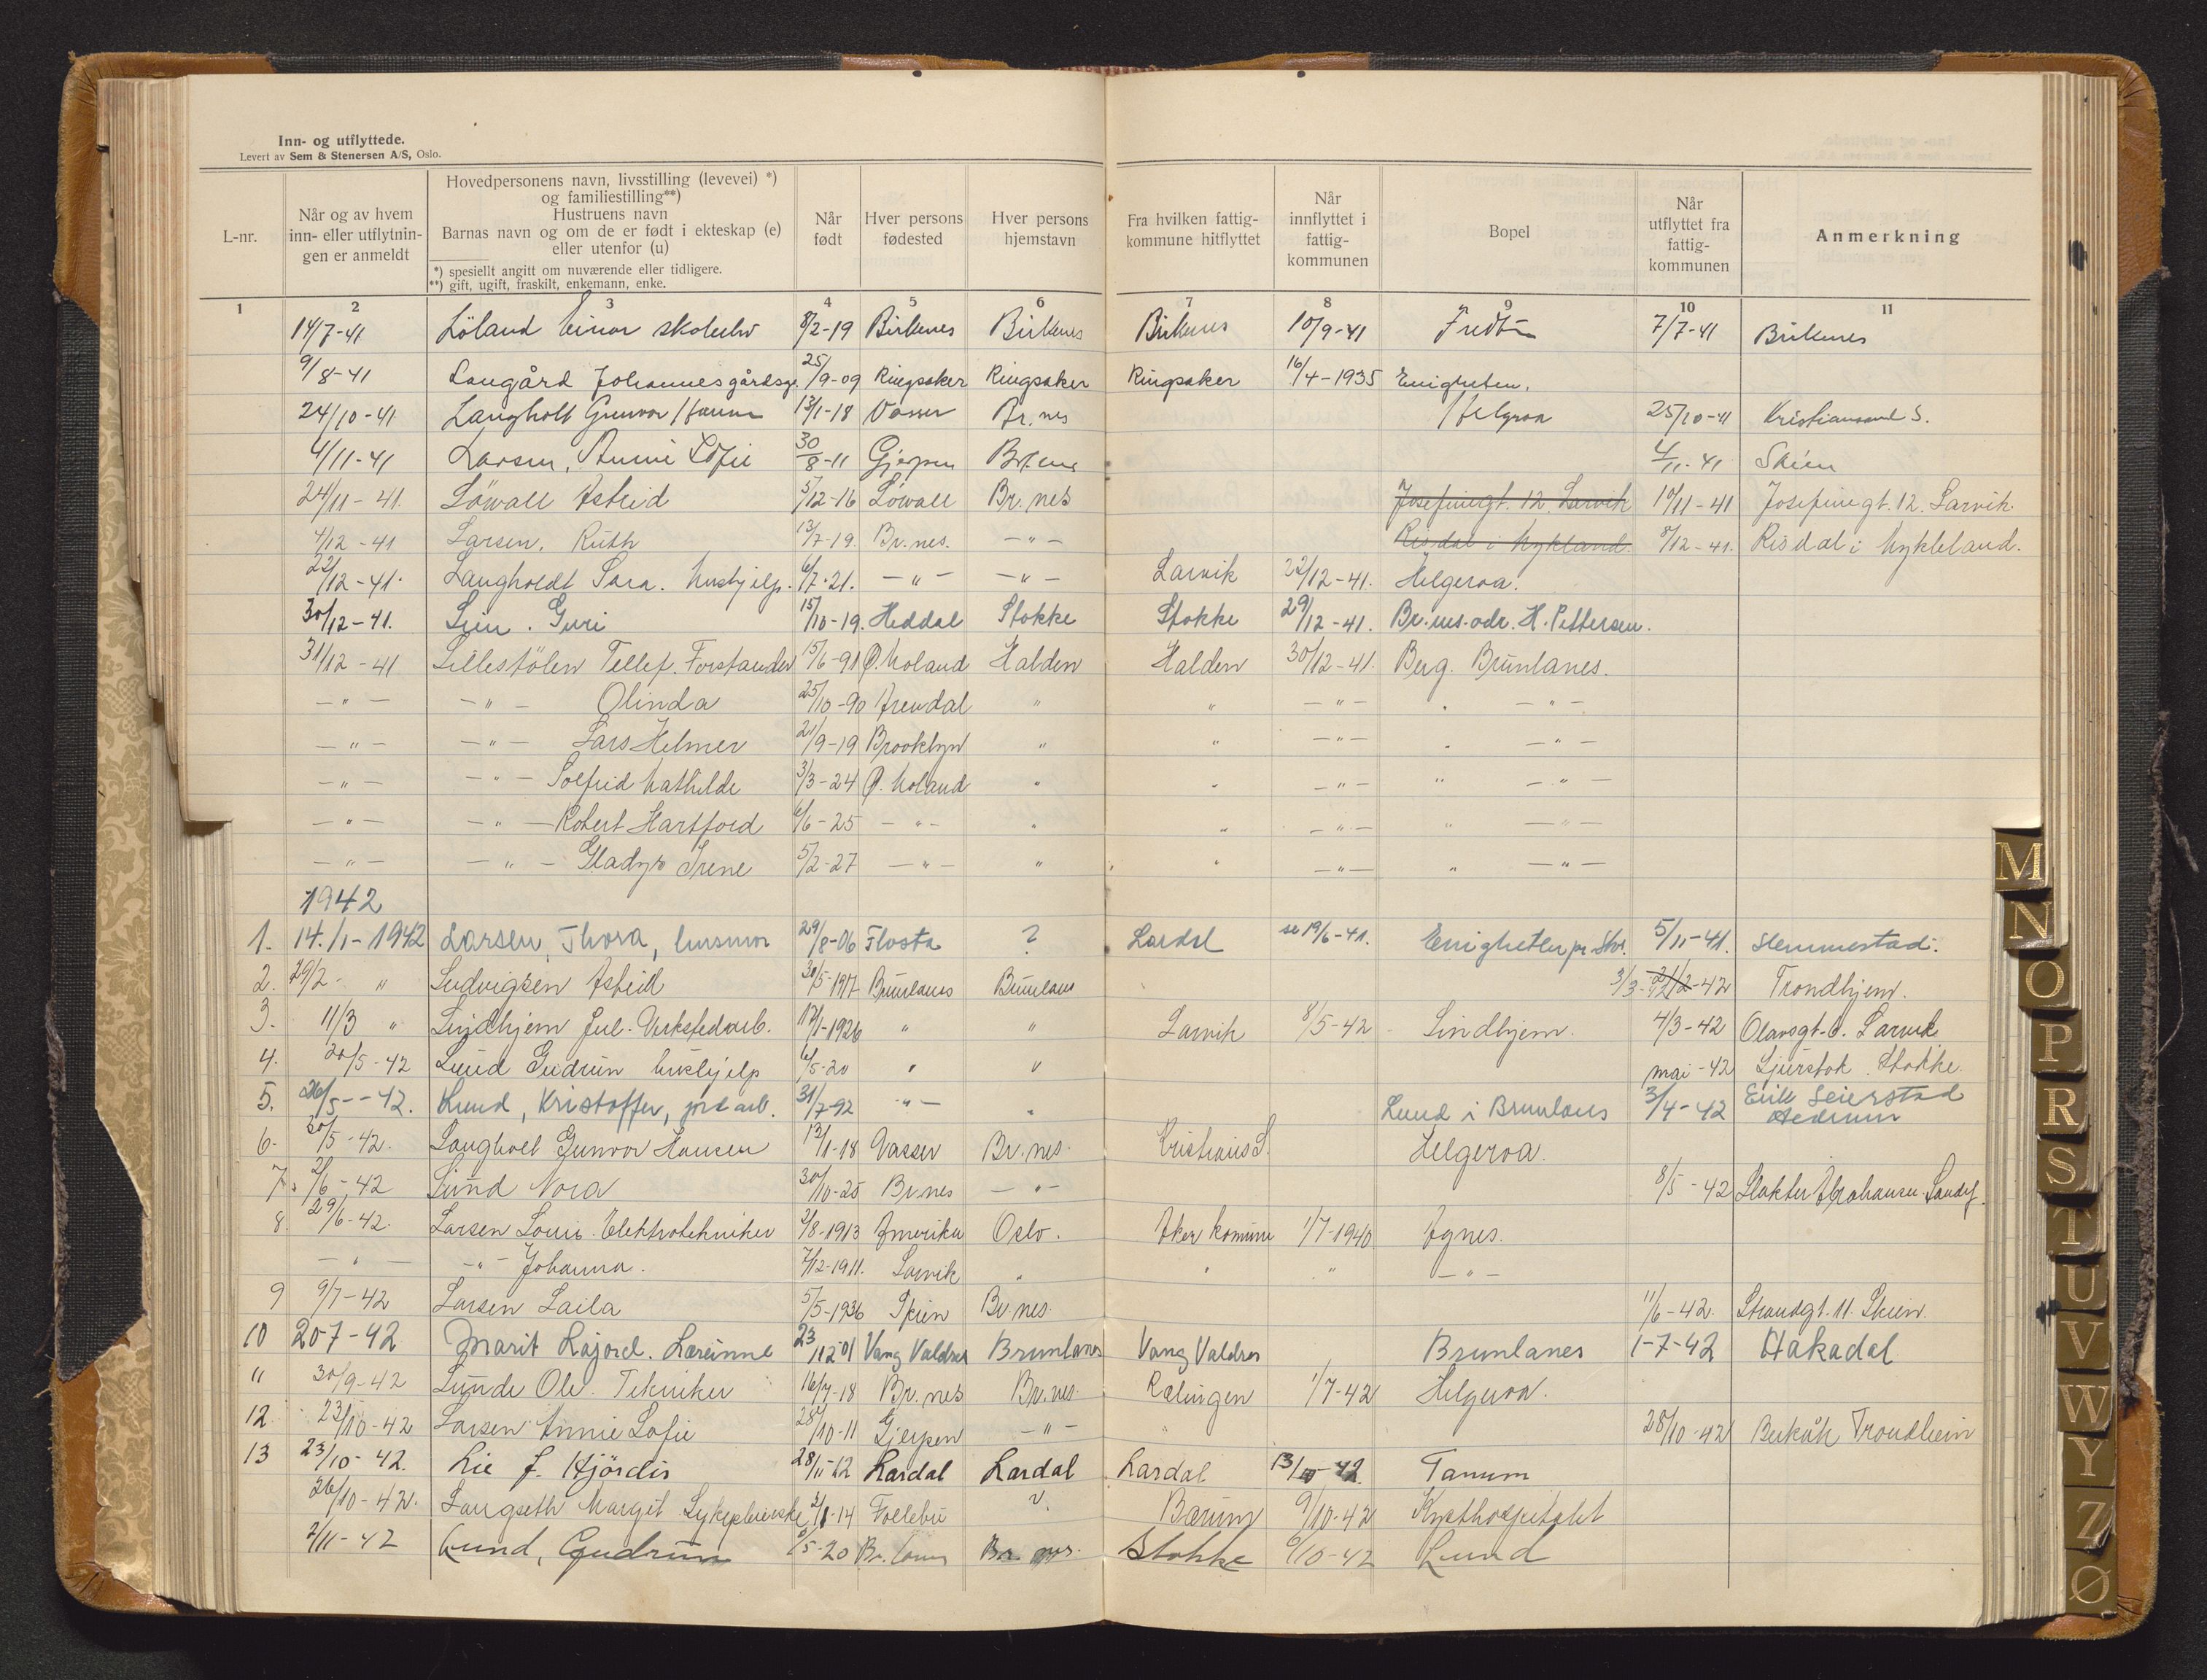 Inn- og utflyttede.
Levert av Sem & Stenersen A/S, Oslo.
L-nr.
Når og av hvem inn- eller utflytnin-gen er anmeldt
Hovedpersonens navn, livsstilling (levevei) *) og familiestilling**) Hustruens navn Barnas navn og om de er født i ekteskap (e) eller utenfor (u)
*) spesiellt angitt om nuværende eller tidligere.
**) gift, ugift, fraskilt, enkemann, enke.
Når født
Hver persons fødested
Hver persons hjemstavn
Fra hvilken fattig-kommune hitflyttet
Når innflyttet i fattig-kommunen
Bopel
Når utflyttet fra fattig-kommunen
Anmerkning
1 2 3 4 5 6 7 8 9 10 11
14/7-41 Löland Einar 8/2-19 Birkenes Birkenes Birkenes 10/9-41 7/7-41 Birkenes
9/8-41 Langård Johannes gårdsgt. 25/9-09 Ringsaker Ringsaker Ringsaker 16/4-1935 Enigheten.
24/10-41 Langholt Gunvor 13/1-18 Vasser Br.nes Helgeroa 25/10-41 Kristiansand S.
4/11-41 Larsen, Annie Sofie 30/8-11 Gjerpen 4/11-41 Skien
24/11-41. Löwall Astrid 5/12-16 Löwall Br.nes Josefinegt. 12. Larvik 10/11-41 Josefinegt. 12. Larvik
4/12-41 Larsen, Ruth 13/7-19. Br.nes. -"- Risdal i Mykland. 8/12-41. Risdal i Mykleland.
22/12-41. Langholdt Sara. Hushjelp. 6/7-21. -"- -"- Larvik 22/12-41. Helgeroa.
30/12-41. Lien. Guri 15/10-19. Heddal Stokke Stokke 29/12-41. Br.nes. adr. H. Pettersen.
31/12-41 Lillestölen Tellef. Forstander 15/6-91 Ø. Moland Halden Halden 30/12-41. Berg. Brunlanes.
-"- -"- Olinda 25/10-90 Arendal " " -"- " -"-
-"- -"- Lars Helmer 21/9-19 Brooklyn " " -"- " -"-
-"- -"- Solfrid Mathilde 3/3-24 Ø. Moland " " -"- " -"-
-"- -"- Robert Hartford 6/6-25 -"- " " -"- " -"-
-"- -"- Gladys Irene 5/2-27 -"- " " -"- " -"-
1942
1. 14./1-1942 Larsen, Thora, husmor 29/8-06 Flosta ? Lardal 19/6-41. Enigheten pr. Stav. 5/11-41. Slemmestad.
2. 29/2- " Ludvigsen Astrid 30/5-1917 Brunlanes Brunlanes 3/3-42 21/2-42 Trondhjem.
3. 11/3 " Lindhjem Jul. Verkstedarb. 17/1-1926 " " Larvik 8/5-42 Lindhjem. 4/3-42 Olavsgt. 6. Larvik
4. 20/5-42 Lund Gudrun hushjelp 6/5-20 " " mai-42 Stokke.
5. 26/5--42. Lund, Kristoffer, jordarb. 31/7-92 -"- " Lund i Brunlanes 3/4-42 Erik Seierstad Hedrum
6. 30/5-42. Langholt Gunvor Hansen 13/1-18 Vasser Br.nes. Kristians S. Helgeroa.
7. 2/6-42 Lund Nora 30/10-25 Br.nes -"- 8/5-42 Slakter Abrahamsen. Sandef.
8. 29/6-42. Larsen Louis. Elektrotekniker 2/8-1913 Amerika Oslo. Aker komune 1/7-1940 Agnes.
-"- -"- Johanna. 7/12-1911. Larvik " " " -"-
9 9/7-42 Larsen Laila 5/5-1936 Skien Br.nes. 11/6-42. Strandgt. 11. Skien.
10 20 7-42 Marit Lajord. Lærerinne 23/12 01 Vang Valdres Brunlanes Vang Valdres Brunlanes 1-7-42 Hakadal
" 30/9-42 Lunde Ole. Tekniker 16/7-18 Br.nes Br.nes. Rælingen 1/7-42 Helgeroa.
12 23/10-42 Larsen Annie Sofie 28/10-11 Gjerpen -"- " 28/10-42 Berkåk Trondheim
13 23/10-42. Lie f. Hjördis 28/11-12 Lardal Lardal Lardal 13/10-42. Tanum
26/10-42. Langseth Margit Sykepleierske 2/1-14 Follebu ?. Bærum 9/10-42 Kysthospitalet
2/11-42 Lund, Gudrun 6/5-20 Br.lanes Br.nes. Stokke 6/10-42 Lund
M
N
O
P
R
S
T
U
V
W
Y
Z
Ø